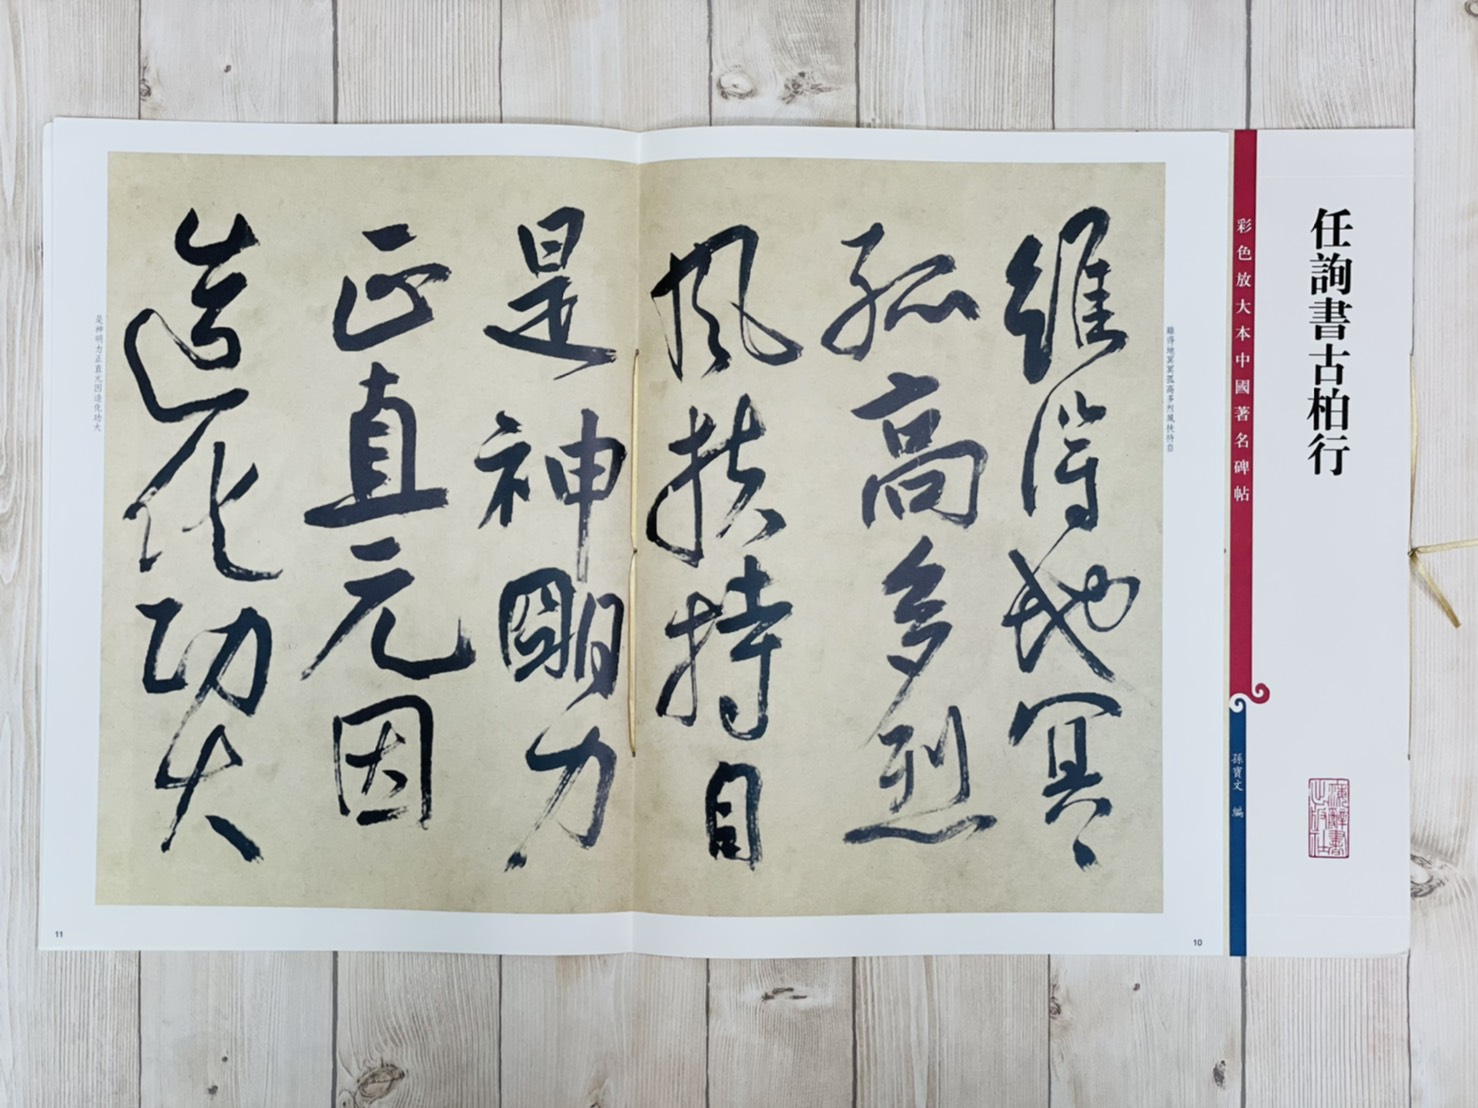 任詢書古柏行
彩色放大本中國著名碑帖
孫寶文 編
雖得地冥冥孤高多烈風扶持自
雖得地冥〻
孤高多烈
風扶持自
是神明力
正直元因
造化功大
是神明力正直元因造化功大
10
11